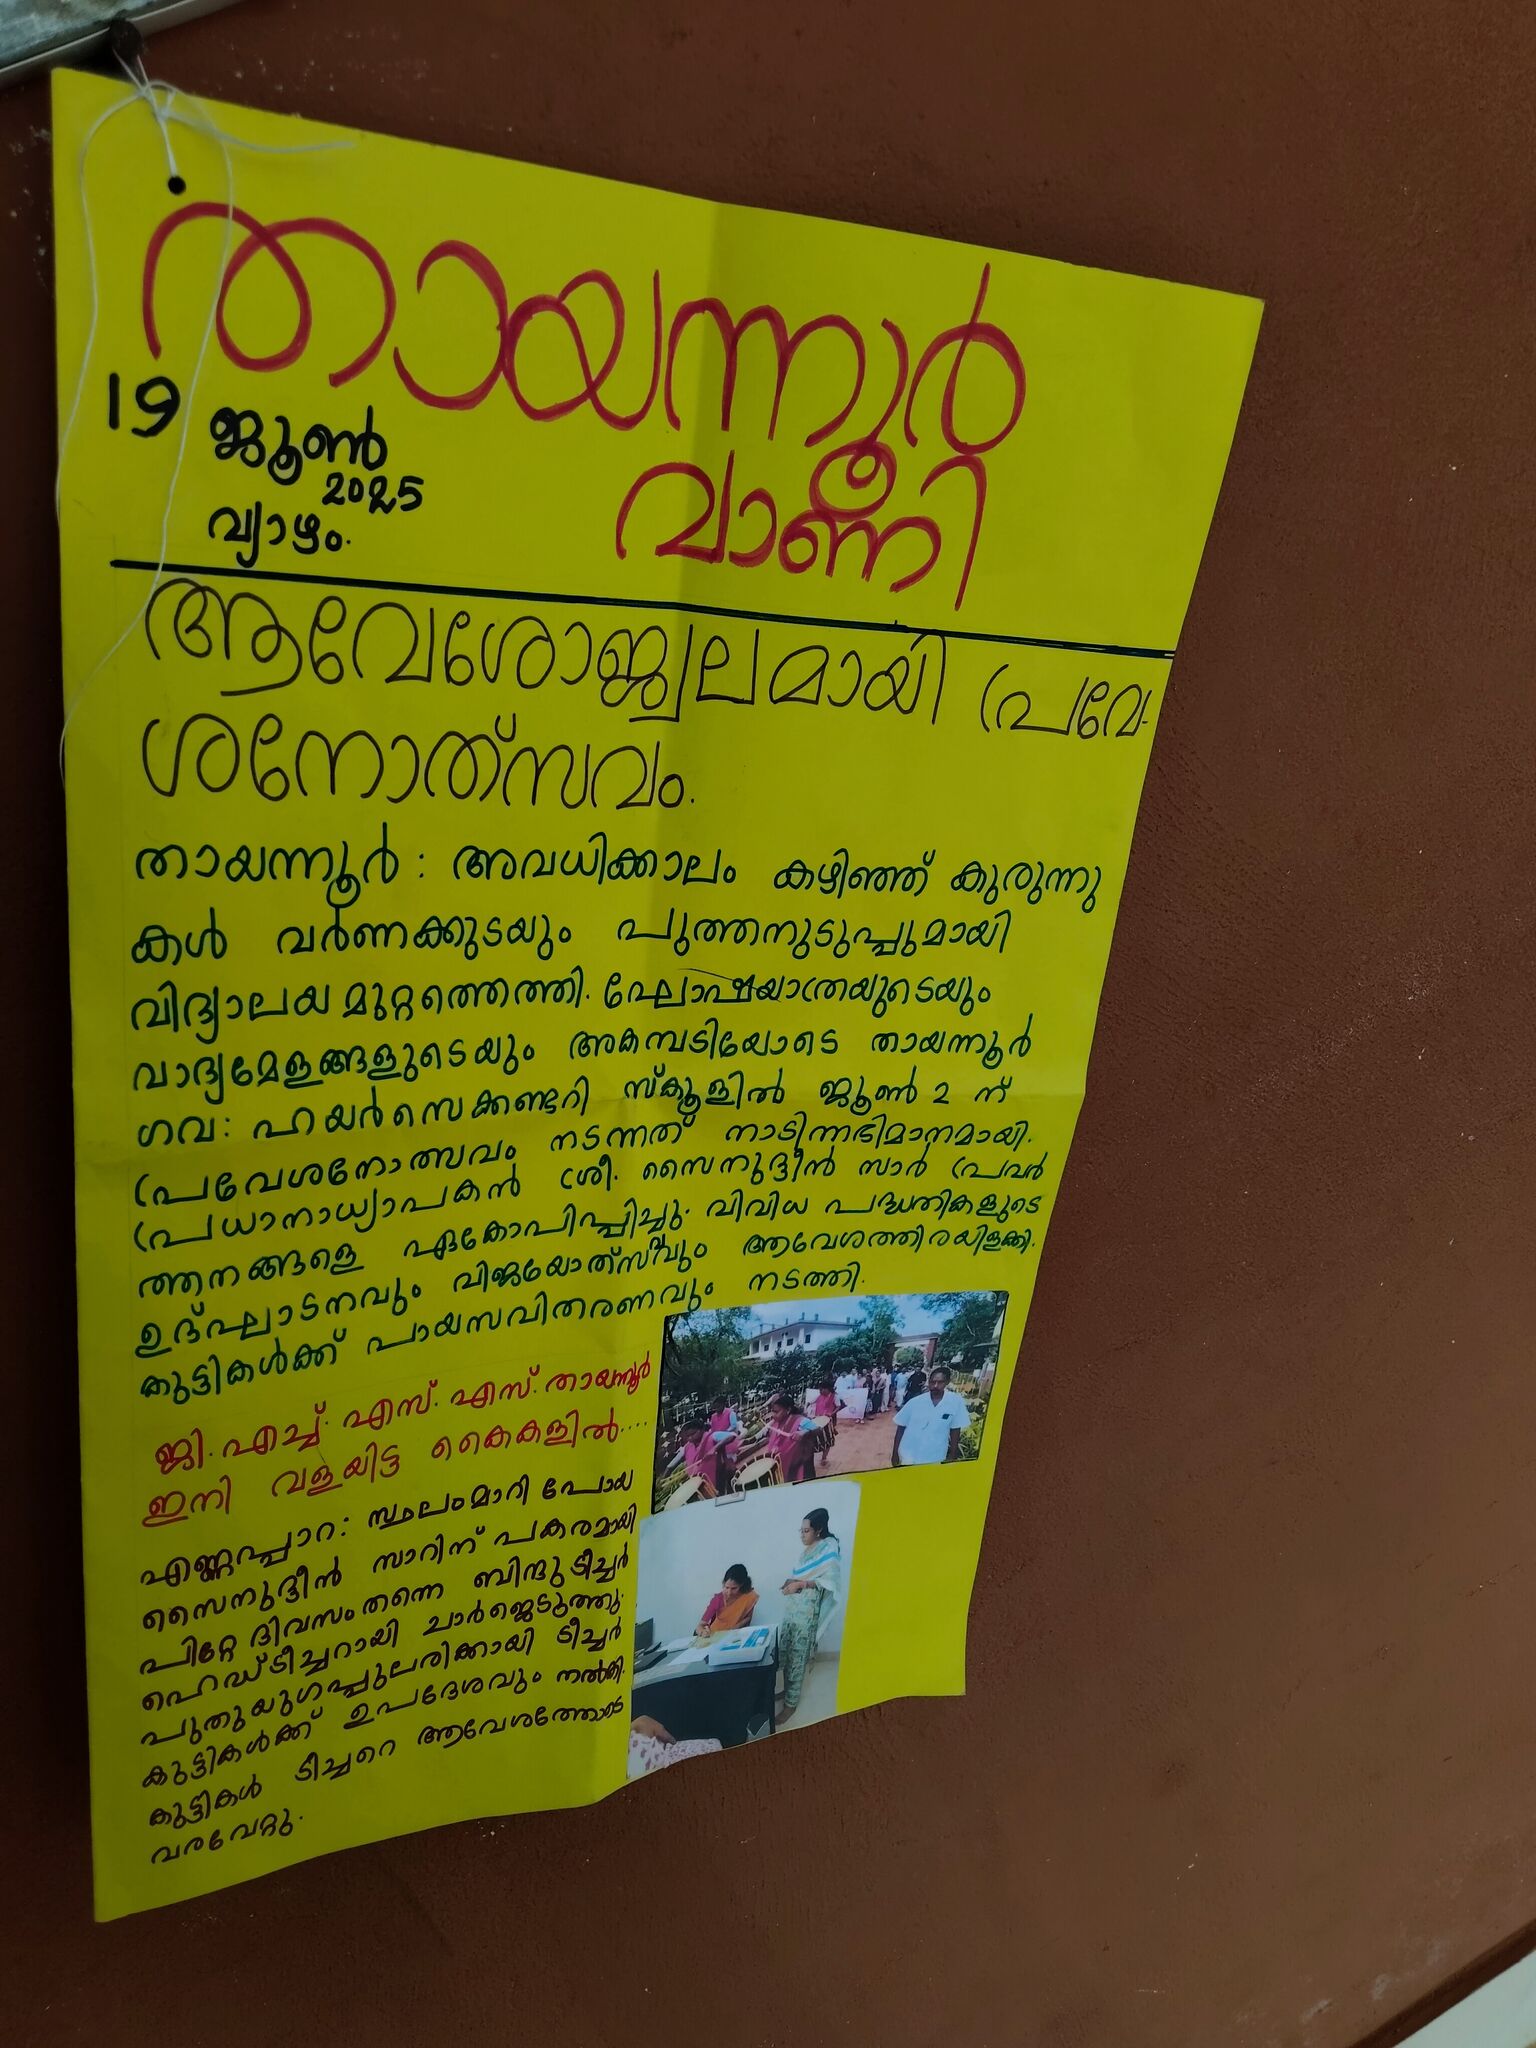 തായന്നൂർ
വാണി
19 ജൂൺ
2025
വ്യാഴം.
ആവേശോജ്ജ്വലമായി പ്രവേ-
ശനോത്സവം.
തായന്നൂർ: അവധിക്കാലം കഴിഞ്ഞ് കുരുന്നു
കൾ വർണക്കുടയും പുത്തനുടുപ്പുമായി
വിദ്യാലയ മുറ്റത്തെത്തി. ഘോഷയാത്രയുടെയും
വാദ്യമേളങ്ങളുടെയും അകമ്പടിയോടെ തായന്നൂർ
ഗവ: ഹയർസെക്കണ്ടറി സ്കൂളിൽ ജൂൺ 2 ന്
പ്രവേശനോത്സവം നടന്നത് നാടിന്നഭിമാനമായി.
പ്രധാനാധ്യാപകൻ ശ്രീ. സൈനുദ്ദീൻ സാർ പ്രവർ
ത്തനങ്ങളെ ഏകോപിപ്പിച്ചു. വിവിധ പദ്ധതികളുടെ
ഉദ്ഘാടനവും വിജയോത്സവവും ആവേശത്തിരയിളക്കി.
കുട്ടികൾക്ക് പായസവിതരണവും നടത്തി.
ജി.എച്ച്.എസ്.എസ്.തായന്നൂർ
ഇനി വളയിട്ട കൈകളിൽ....
എണ്ണപ്പാറ: സ്ഥലംമാറി പോയ
സൈനുദ്ദീൻ സാറിന് പകരമായി
പിറ്റേ ദിവസം തന്നെ ബിന്ദു ടീച്ചർ
ഹെഡ്ടീച്ചറായി ചാർജെടുത്തു.
പുതുയുഗപ്പുലരിക്കായി ടീച്ചർ
കുട്ടികൾക്ക് ഉപദേശവും നൽകി.
കുട്ടികൾ ടീച്ചറെ ആവേശത്തോടെ
വരവേറ്റു.